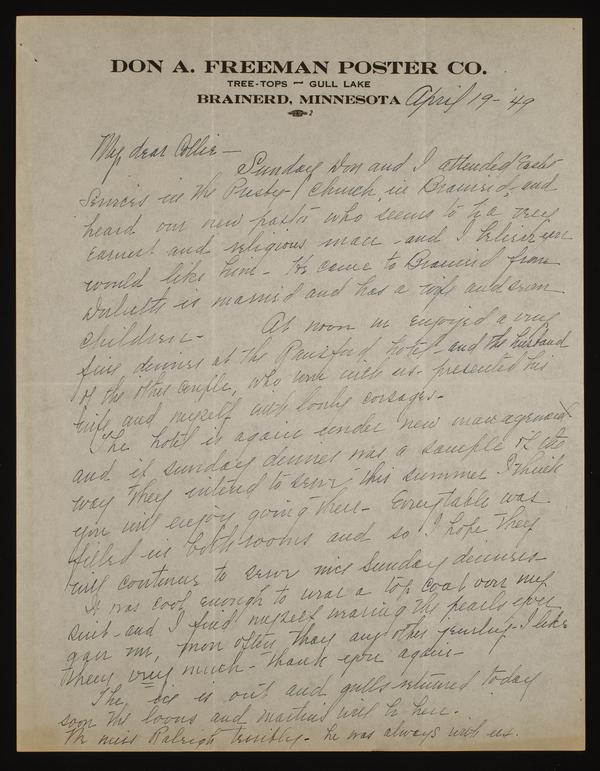 DON A. FREEMAN POSTER CO.
TREE-TOPS ~ GULL LAKE
BRAINERD, MINNESOTA April 19-'49
My dear Ollie-
Sunday Don and I attended Easter
Services in the Presby- Church in Brainerd, and
heard our new pastor who seems to be a very
earnest and religious man - and I believe you
would like him - He came to Brainerd from
Duluth is married and has a wife and seven
children-
At noon we enjoyed a very
fine dinner at the Ransford hotel - and the husband
of the other couple, who were with us - presented his
wife and myself with lovely corsages-
The hotel is again under new management
and if Sunday dinner was a sample of the
way they intend to serve this summer I think
you will enjoy going there - Every table was
filled in both rooms and so I hope they
will continue to serve nice Sunday dinners
It was cool enough to wear a top coat over my
suit - and I find myself wearing the pearls you
gave me, more often than any other jewelry - I like
them very much - thank you again-
The ice is out and gulls returned today
soon the loons and martins will be here.
We miss Raleigh terribly - he was always with us.